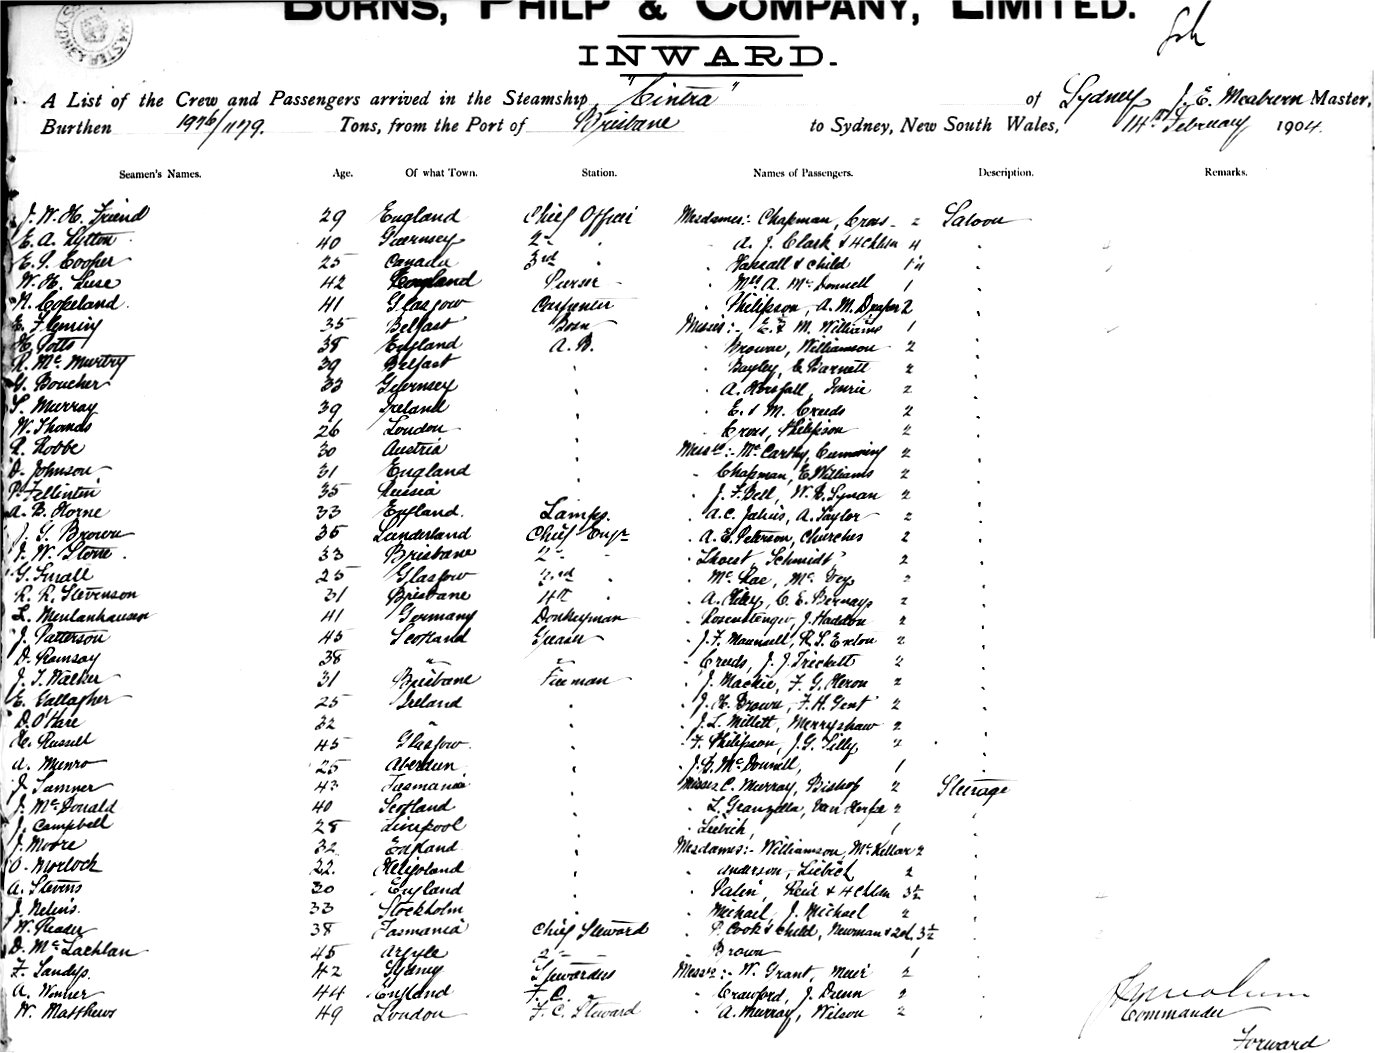 BURNS, PHILP & COMPANY, LIMITED.
INWARD.
A List of the Crew and Passengers arrived in the Steamship "Cintra" of Sydney J. E. Meaburn Master,
Burthen 1976/1179. Tons, from the Port of Brisbane to Sydney, New South Wales, 14th February 1904.
Seamen's Names. Age. Of what Town. Station. Names of Passengers. Description. Remarks.
J. W. H. Friend 29 England Chief Officer Mesdames:- Chapman, Cross - 2 Saloon
E. A. Lytton 40 Guernsey 2nd " A. J. Clark & 4 Chldn 4
E. G. Cooper 25 Canada 3rd " & child
W. H. Luse 42 England Purser Mrs A. McDonnell 1
N. Copeland 41 Glasgow Carpenter Philipson, A. M. Draper 2
E. Fleming 35 Belfast Bosn Misses:- E. & M. Williams 1
H. Potts 38 England A. B. Browne, Williamson 2
R. McMurtry 39 Belfast Bayley, C. Barnett 2
G. Boucher 33 Guernsey A. Horsfall, 2
S. Murray 39 Ireland E. & M. Creeds 2
W. Thomas 26 London Cross, Philipson 2
R. Robbe 30 Austria Messrs:- McCarthy, Cumming 2
D. Johnson 31 England Chapman, E Williams 2
P. Fellintin 35 Russia J. F. Bell, W. E. Synan 2
A. B. Horne 33 England. Lamps. A. C. Julius, A. Taylor 2
J. G. Brown 35 Sunderland Chief Engr A. E. Peterson, Churches 2
J. W. Stone 33 Brisbane 2nd Schmidt 2
G. Small 25 Glasgow 3rd " McRae, 2
R. R. Stevenson 31 Brisbane 4th " A. Kiley, C. E. Bernays 2
L. Meulanhausen 41 Germany Donkeyman Rosenstenger, J. Haddon 2
J. Patterson 45 Scotland Greaser J. F. Maunsell, R. S. Exton 2
D. Ramsay 38 " " Creeds, J. J. Trickett 2
J. T. Walker 31 Brisbane Fireman J. Mackie, F. G. Heron 2
E. Gallagher 25 Ireland J. H. Brown, F. H. Gent 2
D. O'Hare 32 " J. L. Millett, Merryshaw 2
H. Russell 45 Glasgow F. Philipson, J. G. Lilly 2
A. Munro 25 Aberdeen J. E. McDonnell, 1
J. Sumner 43 Tasmania Misses C. Murray, Bishop 2 Steerage
J. McDonald 40 Scotland L. Granzella, Van 2
J. Campbell 28 Liverpool Liebich, 1
J. Moore 32 England Mesdames:- Williamson, McKellar 2
O. Morlock 22 Heligoland Anderson, Liebich 2
A. Stevens 30 England Palin, Reid & 4 Chldn 3½
J. Nelins. 33 Stockholm Michael, J. Michael 2
W. Reader 38 Tasmania Chief Steward P. Cook & Child, Newman & 2 d. 3½
D. McLachlan 45 Argyle 2nd - Brown 1
F. Sandys. 42 Sydney Stewardess Messrs:- W. Grant, Meir 2
A. Wenner 44 England F. C. " Crawford, J. Dunn 2
W. Matthews 49 London F. C. Steward A. Murray, Wilson 2
Commander
Forward